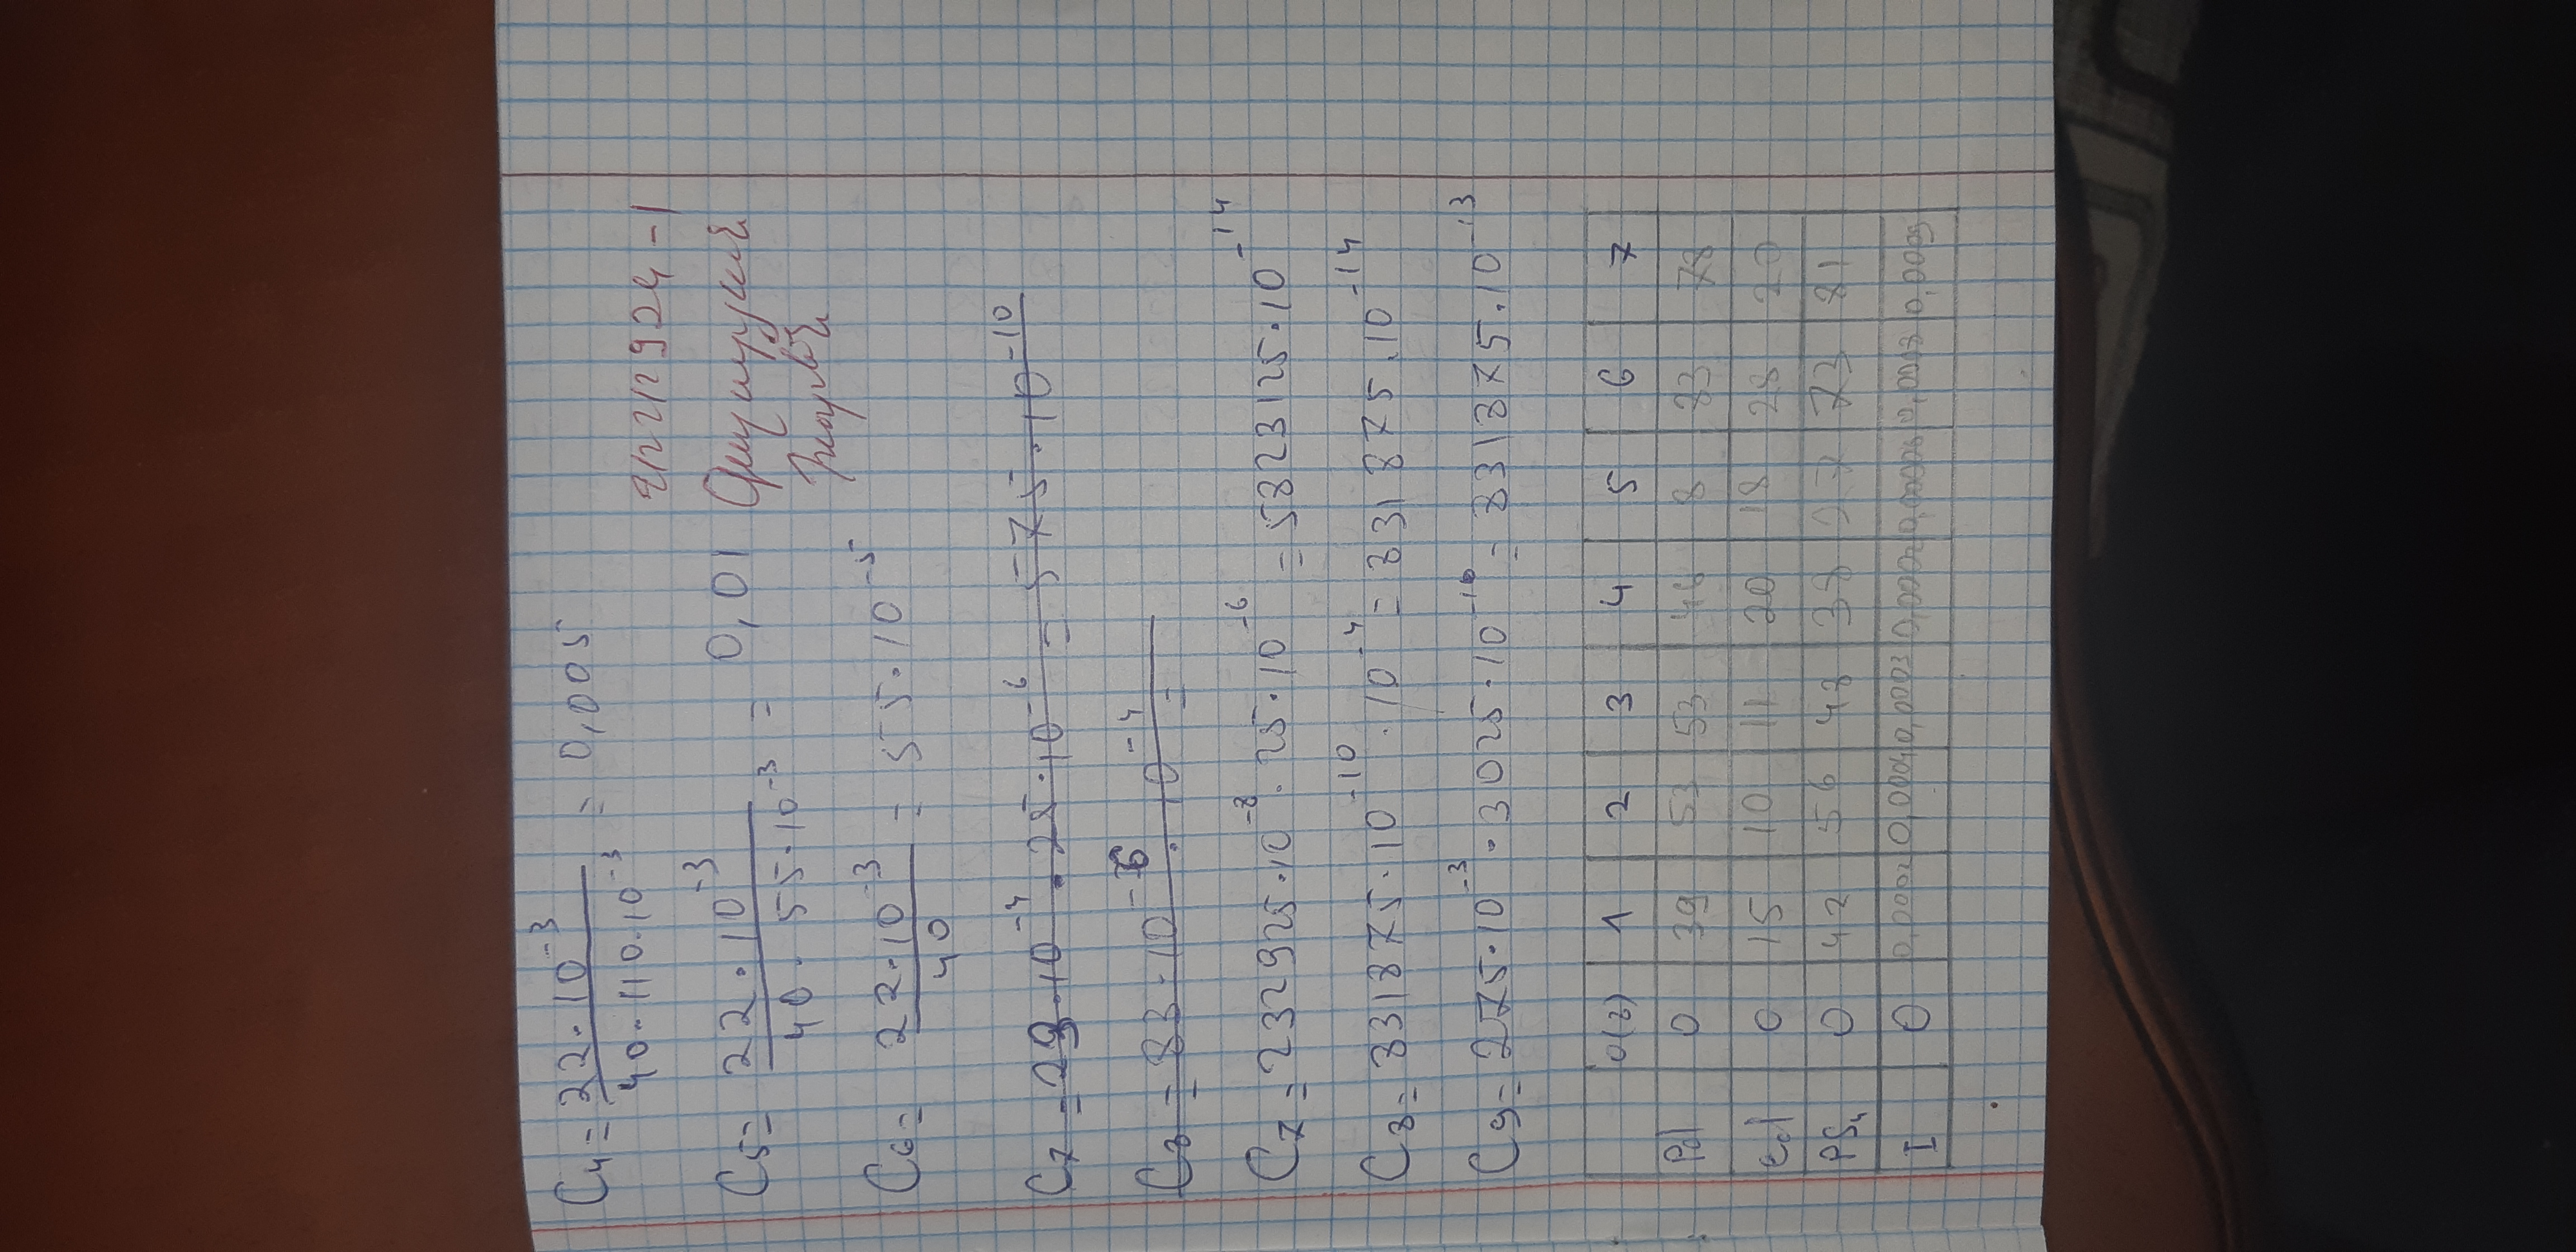 C₄ = 22·10⁻³ / 40·110·10⁻³ = 0,005
C₅ = 22·10⁻³ / 40·55·10⁻³ = 0,01
C₆ = 22·10⁻³ / 40 = 55·10⁻⁵
C₇ = 23·10⁻⁴ · 25·10⁻⁶ = 575·10⁻¹⁰
C₈ = 83·10⁻⁶ · 10⁻⁴ =
C₇ = 232925·10⁻⁸ · 25·10⁻⁶ = 5823125·10⁻¹⁴
C₈ = 831875·10⁻¹⁰ · 10⁻⁴ = 831875·10⁻¹⁴
C₉ = 275·10⁻³ · 3025·10⁻¹⁰ = 831875·10⁻¹³
0(8) 1 2 3 4 5 6 7
Pd 0 39 53 53 46 8 83 78
Ed 0 15 10 11 20 18 28 20
PS₄ 0 42 56 48 38 27 73 81
I 0 0,0002 0,0004 0,0003 0,0002 0,0008 0,0009